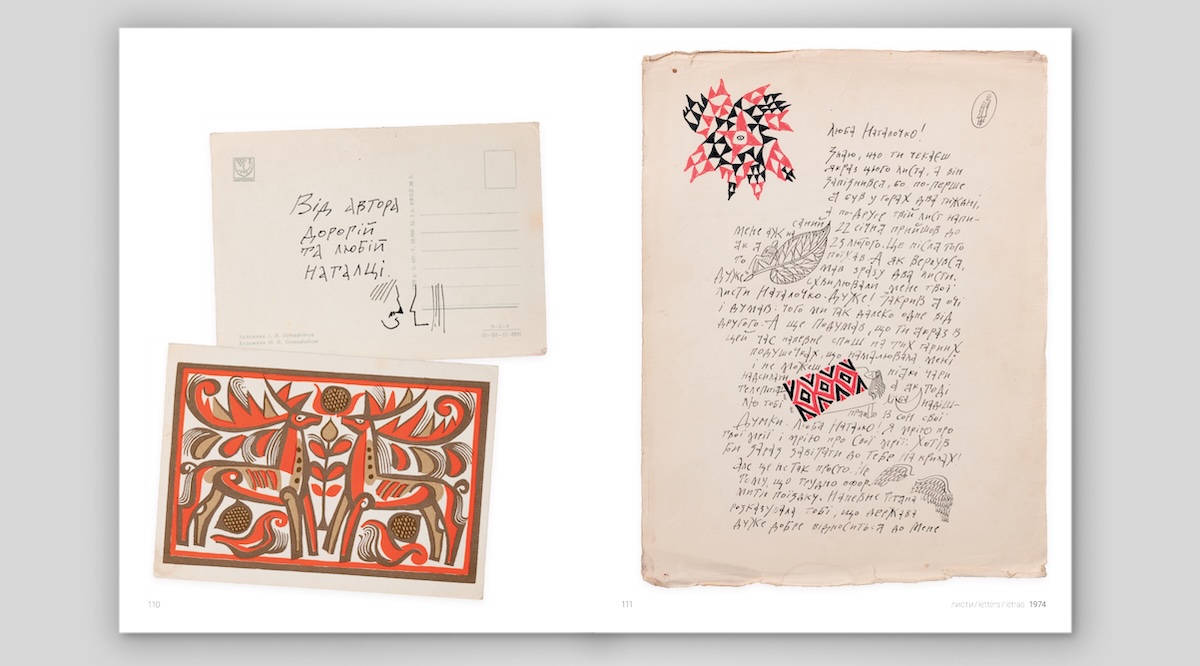 Від автора
дорогій
та любій
Наталці.
Люба Наталочко!
Знаю, що ти чекаєш
якраз цього листа, а він
запізнився, бо по-перше
я був у горах два тижні,
а по-друге твій лист напи-
саний 22 січня прийшов до
мене аж на 25 лютого. Ще після того
як я поїхав. А як вернувся,
то мав зразу два листи.
Дуже схвилювали мене твої
листи Наталочко. Дуже! Закрив я очі
і думав: чого ми так далеко одне від
другого. А ще подумав, що ти якраз в
цей час напевне спиш на тих гарних
подушечках, що намалювала мені
і не можеш
надсилати
а я тоді
лю тобі
в сон свої
думки. Люба Наталко! Я мрію про
твої мрії і мрію про свої мрії. Хотів
би зараз завітати до тебе на крилах!
Але це не так просто. Не
тому, що трудно офор-
мити поїздку. Напевне Тетяна
розказувала тобі, що держава
дуже добре відноситься до мене
110
111
листи/letters/letras 1974